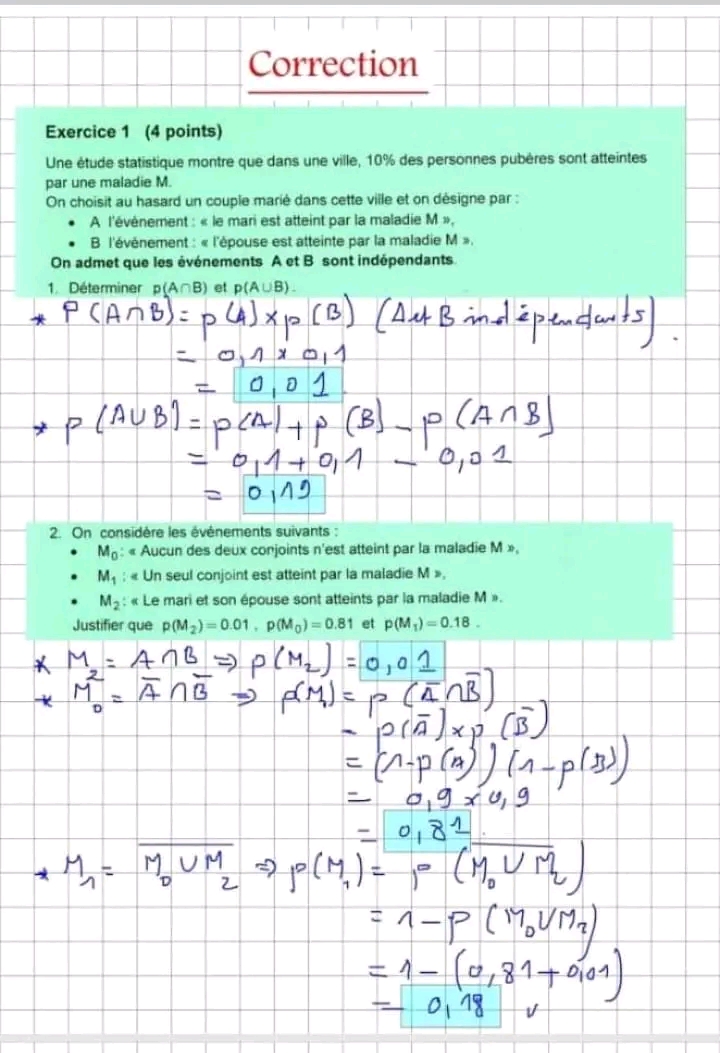 Correction
Exercice 1 (4 points)
Une étude statistique montre que dans une ville, 10% des personnes pubères sont atteintes
par une maladie M.
On choisit au hasard un couple marié dans cette ville et on désigne par :
• A l'événement : « le mari est atteint par la maladie M »,
• B l'événement : « l'épouse est atteinte par la maladie M ».
On admet que les événements A et B sont indépendants.
1. Déterminer p(A∩B) et p(A∪B).
* P(A∩B) = p(A) × p(B) (A et B indépendants).
= 0,1 × 0,1
= 0,01
* p(A∪B) = p(A) + p(B) - p(A∩B)
= 0,1 + 0,1 - 0,01
= 0,19
2. On considère les événements suivants :
• M₀ : « Aucun des deux conjoints n'est atteint par la maladie M »,
• M₁ : « Un seul conjoint est atteint par la maladie M »,
• M₂ : « Le mari et son épouse sont atteints par la maladie M ».
Justifier que p(M₂) = 0.01 , p(M₀) = 0.81 et p(M₁) = 0.18 .
* M₂ = A∩B ⇒ p(M₂) = 0,01
* M₀ = A̅ ∩ B̅ ⇒ p(M₀) = p(A̅ ∩ B̅)
= p(A̅) × p(B̅)
= (1-p(A)) (1-p(B))
= 0,9 × 0,9
= 0,81
* M₁ = \overline{M₀ ∪ M₂} ⇒ p(M₁) = p(\overline{M₀ ∪ M₂})
= 1 - p(M₀∪M₂)
= 1 - (0,81 + 0,01)
= 0,18 ✓